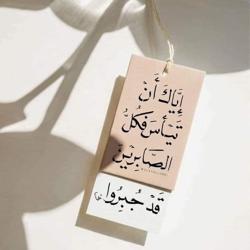 إِيَّاكَ أَنْ
تَيْأَسَ فَكُلُّ
الصَّابِرِيْنَ
قَدْ جُبِرُوا